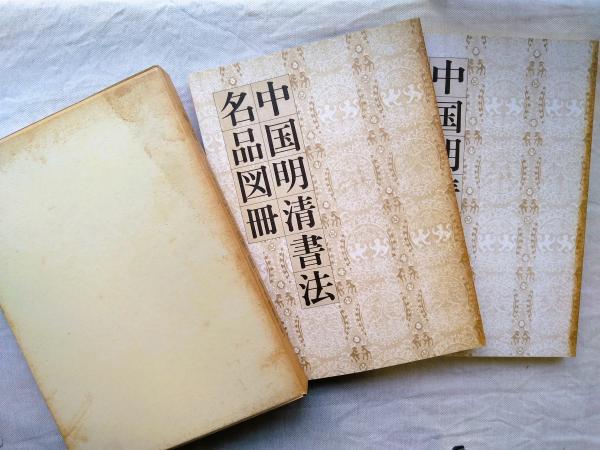 中国明清書法
名品図冊
中国明